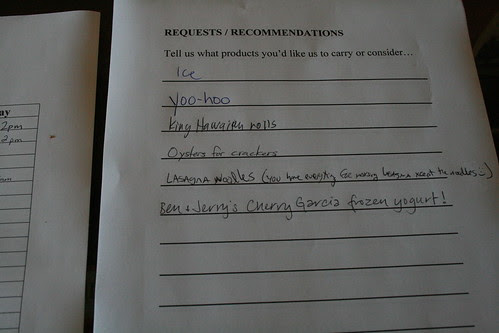 REQUESTS / RECOMMENDATIONS
Tell us what products you'd like us to carry or consider…
Ice
Yoo-hoo
King Hawaiian rolls
Oysters for crackers
LASAGNA Noodles (you have everything for making lasagna except the noodles :)
Ben & Jerry's Cherry Garcia frozen yogurt!
ay
2pm
2pm